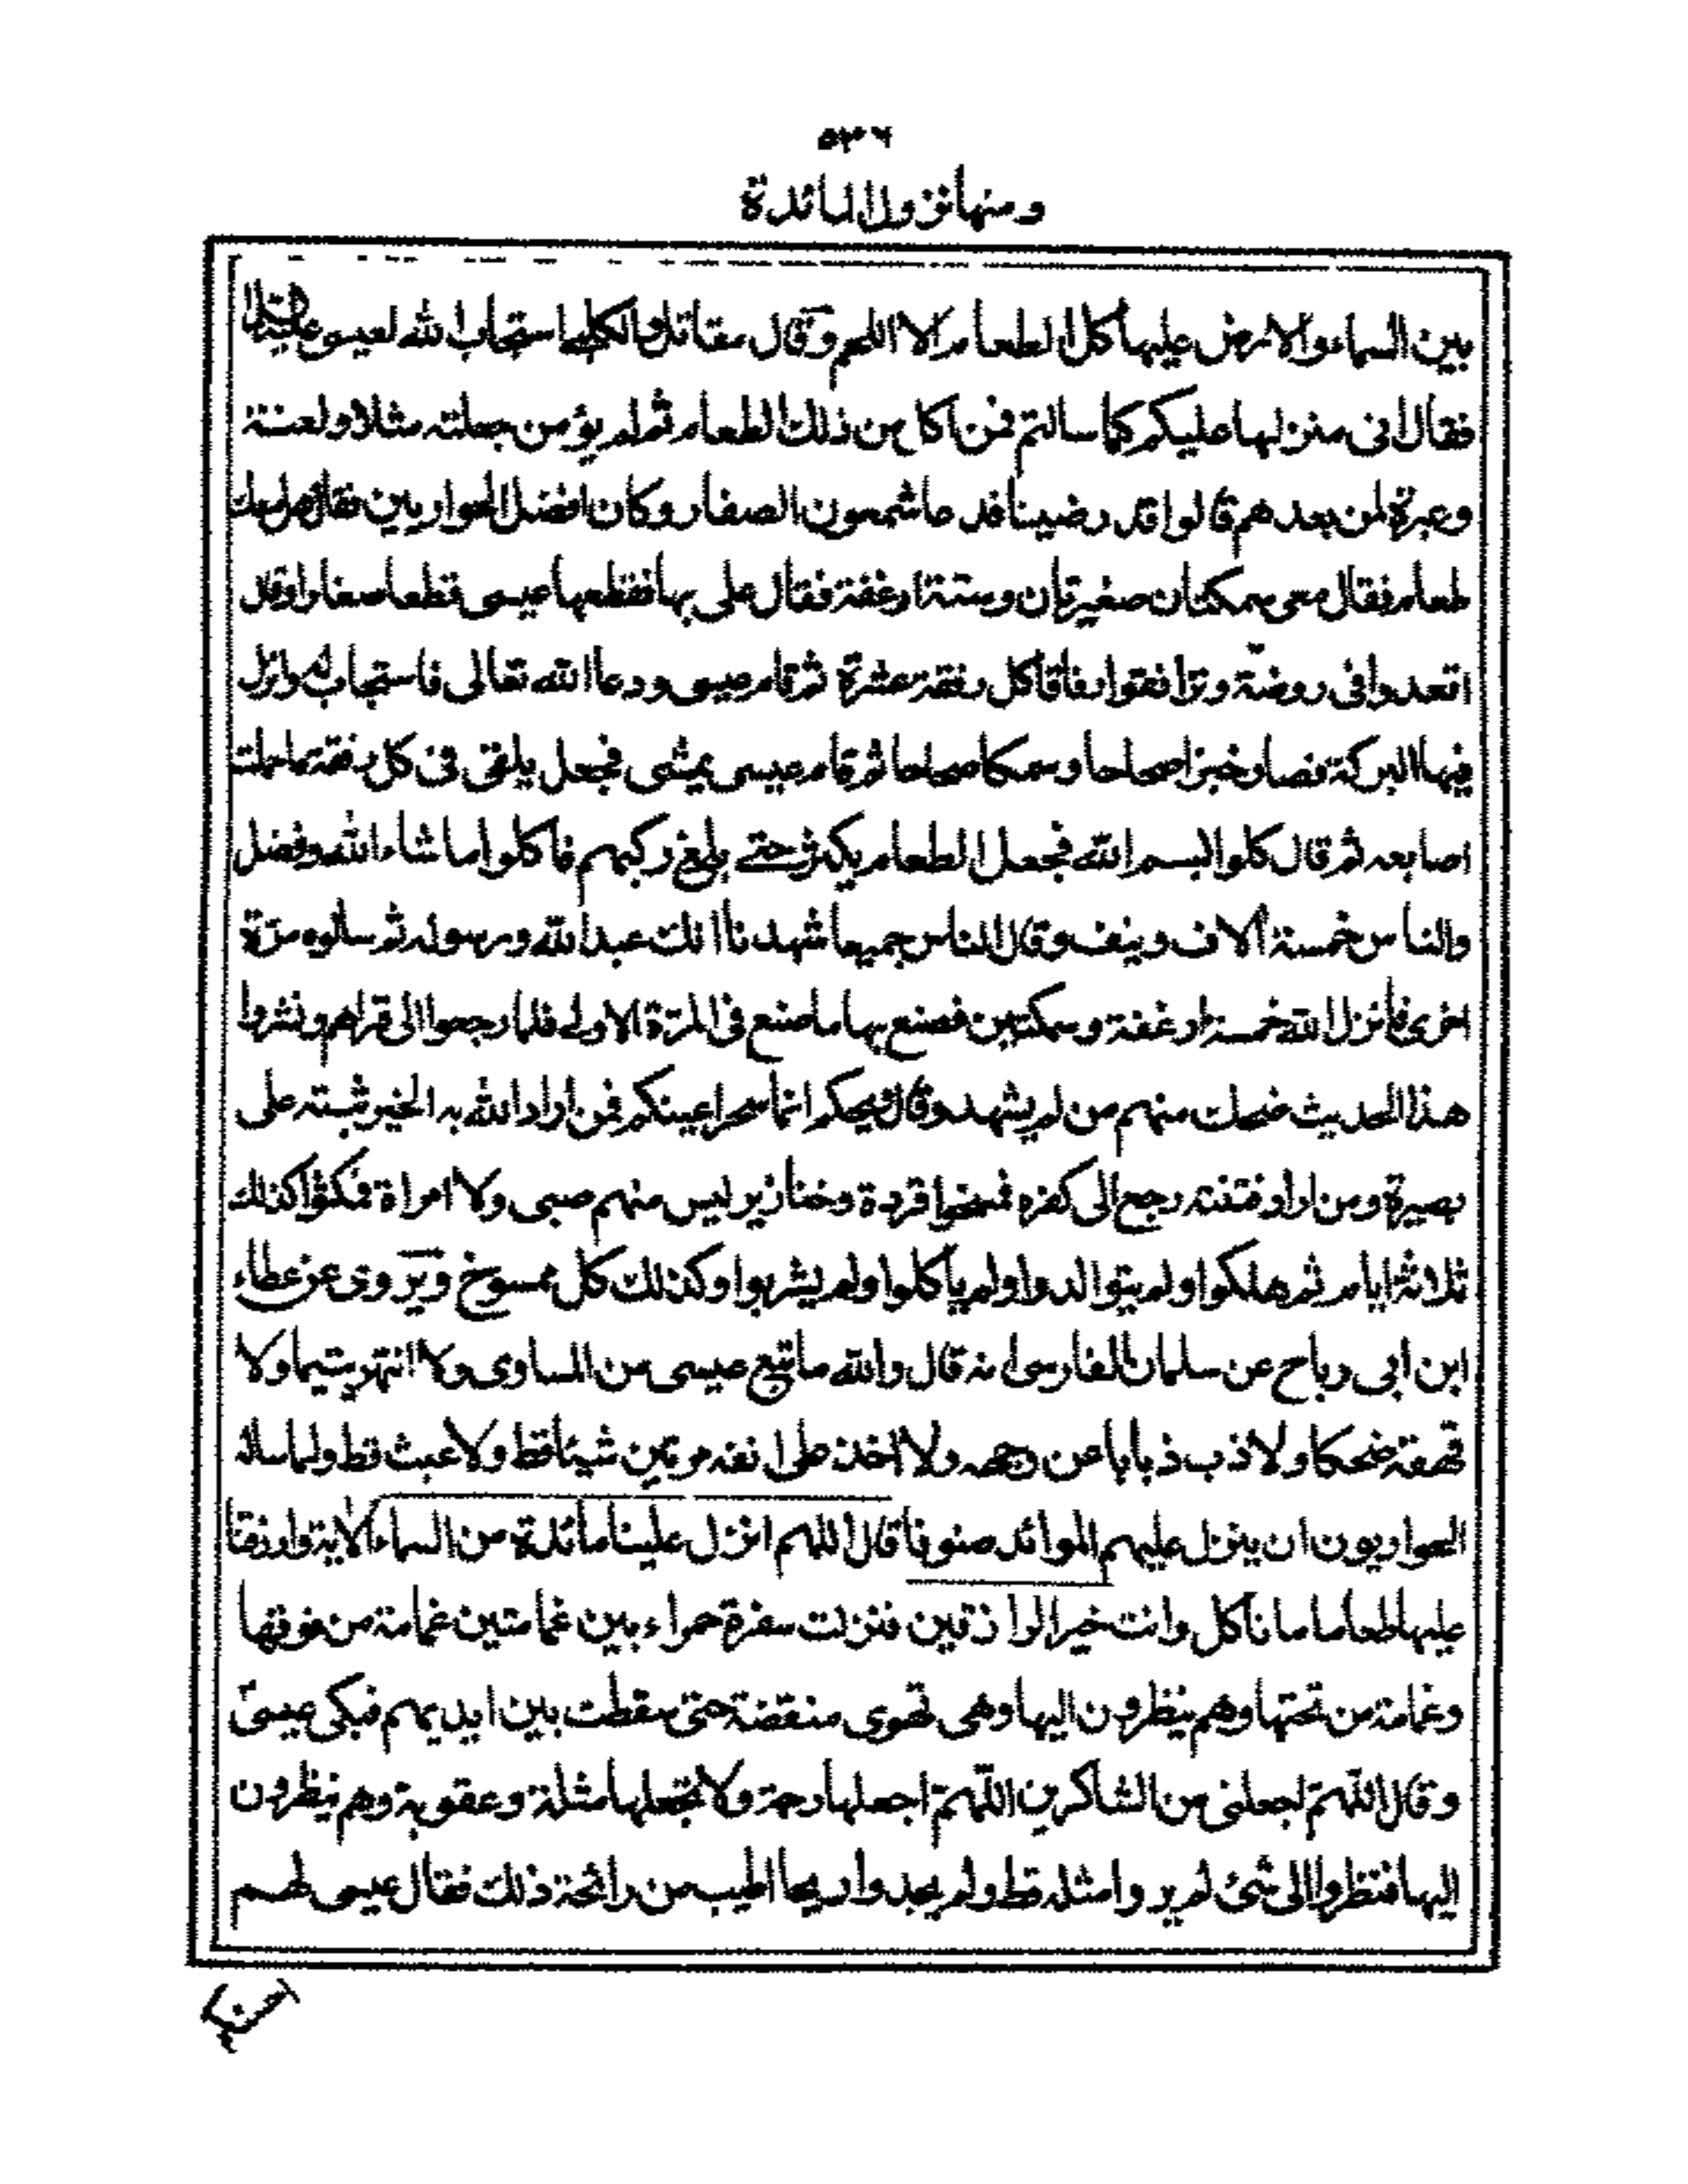 ٥٣٦
ومنها نزول المائدة
بين السماء والارض عليها كل الطعام الا اللحم وقال مقاتل والكلبي استجاب الله لعيسى عليه السلام
فقال انى منزلها عليكم كما سالتم فمن اكل من ذلك الطعام ثم لم يؤمن جعلته مثلا ولعنة
وعبرة لمن بعدهم قالوا قد رضينا فدعا شمعون الصفار وكان افضل الحواريين فقال هل معك
طعام فقال معى سمكتان صغيرتان وستة ارغفة فقال على بها فقطعها عيسى قطعا صغارا وقال
اقعدوا فى روضة وترافقوا رفاقا كل رفقة عشرة ثم قام عيسى ودعا الله تعالى فاستجاب له وانزل
فيها البركة فصار خبزا صحاحا وسمكا صحاحا ثم قام عيسى يمشى فجعل يلقى فى كل رفقة ما حملت
اصابعه ثم قال كلوا البسم الله فجعل الطعام يكثر حتے بلغ ركبهم فاكلوا ما شاء الله وفضل
والناس خمسة الاف ونيف وقال الناس جميعا شهدنا انك عبد الله ورسوله ثم سالوه مرّة
اخرى فانزل الله خمسة ارغفة وسمكتين فصنع بها ما صنع فى المرّة الاولى فلما رجعوا الى قراهم ونشروا
هذا الحديث ضحك منهم من لم يشهد وقال ويحكم انما سحر اعينكم فمن اراد الله به الخير ثبته على
بصيرة ومن اراد فتنته رجع الى كفره فمسخوا قردة وخنازير ليس منهم صبى ولا امراة فمكثوا كذلك
ثلاثة ايام ثم هلكوا ولم يتوالدوا ولم ياكلوا ولم يشربوا وكذلك كل ممسوخ ويروى عن عطاء
ابن ابى رباح عن سلمان الفارسى انه قال والله ما تبع عيسى من المساوى ولا انتهر يتيما ولا
قهقه ضحكا ولا ذب ذبابا عن وجهه ولا اخذ على انفه من نتن شيئا قط ولا عبث قط ولما ساله
الحواريون ان ينزل عليهم الموائد صنوفا قال اللهم انزل علينا مائدة من السماء الاية وارزقنا
عليها طعاما ما ناكل وانت خير الرازقين فنزلت سفرة حمراء بين غمامتين غمامة من فوقها
وغمامة من تحتها وهم ينظرون اليها وهى تهوى منقضة حتى سقطت بين ايديهم فبكى عيسى
وقال اللّهمّ اجعلنى من الشاكرين اللّهمّ اجعلها رحمة ولا تجعلها مثلة وعقوبة وهم ينظرون
اليها فنظروا الى شئ لم يروا مثله قط ولم يجدوا ريحا اطيب من رائحة ذلك فقال عيسى لهم